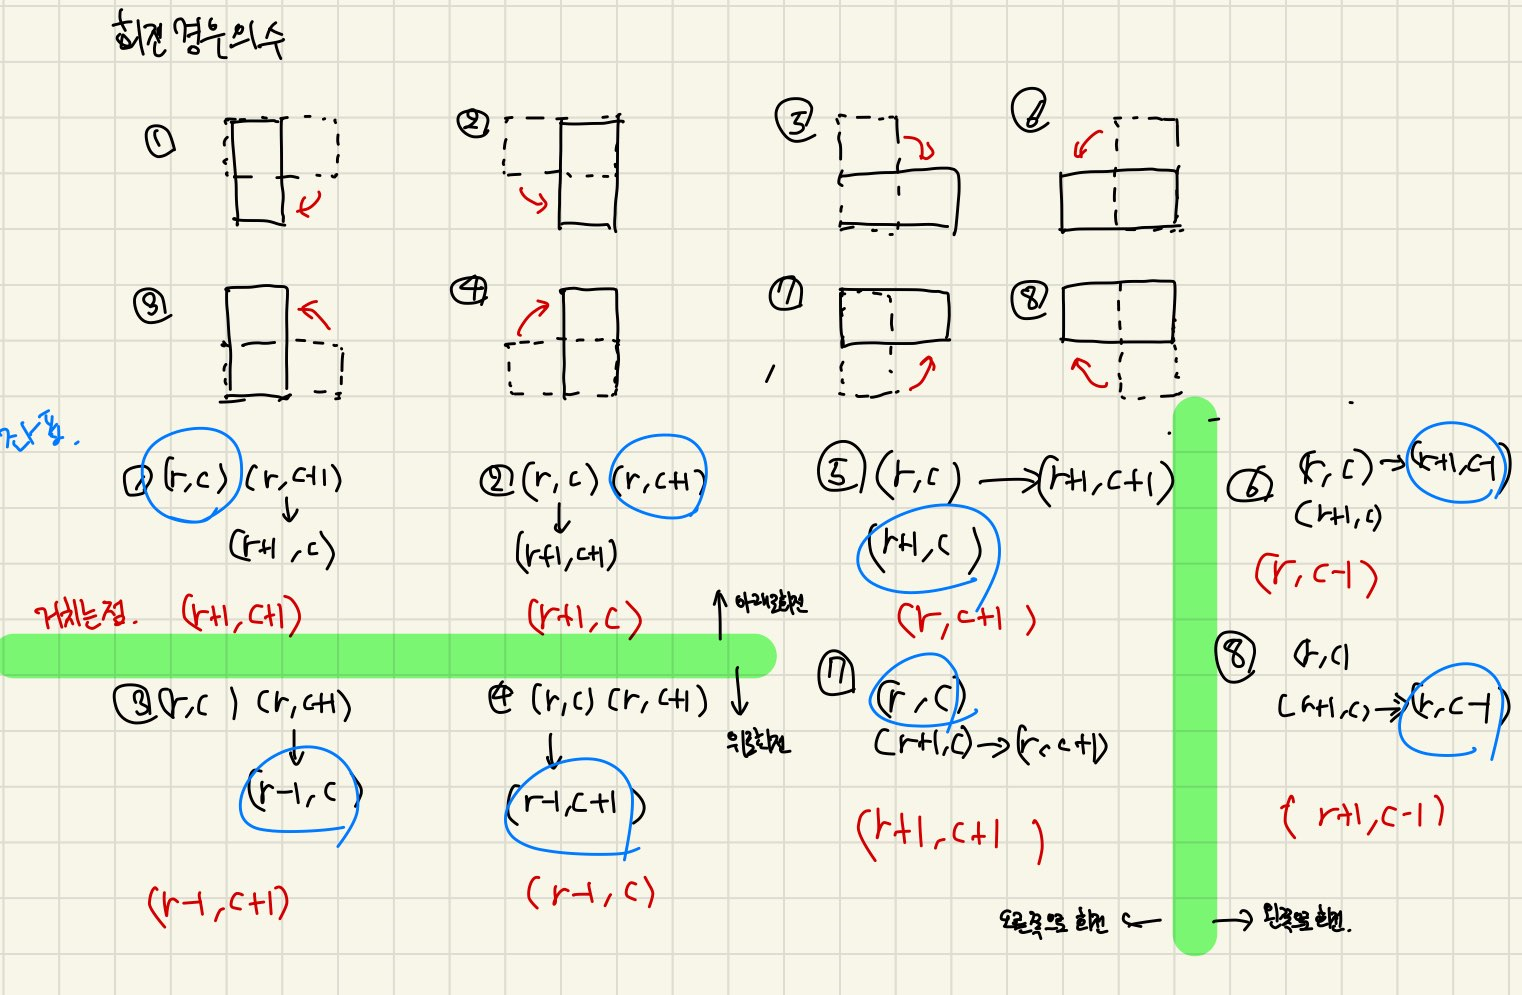 회전 경우의 수
① ② ⑤ ⑥
③ ④ ⑦ ⑧
① (r,c) (r,c+1)
↓
(r+1,c)
거치는점. (r+1,c+1)
② (r,c) (r,c+1)
↓
(r+1,c+1)
(r+1,c)
↑ 아래로회전
↓ 위로회전
③ (r,c) (r,c+1)
↓
(r-1,c)
(r-1,c+1)
④ (r,c) (r,c+1)
↓
(r-1,c+1)
(r-1,c)
⑤ (r,c) → (r+1,c+1)
(r+1,c)
(r,c+1)
⑦ (r,c)
(r+1,c) → (r,c+1)
(r+1,c+1)
⑥ (r,c) → (r+1,c-1)
(r+1,c)
(r,c-1)
⑧ (r,c)
(r+1,c) → (r,c-1)
(r+1,c-1)
오른쪽으로 회전 ← → 왼쪽으로 회전.